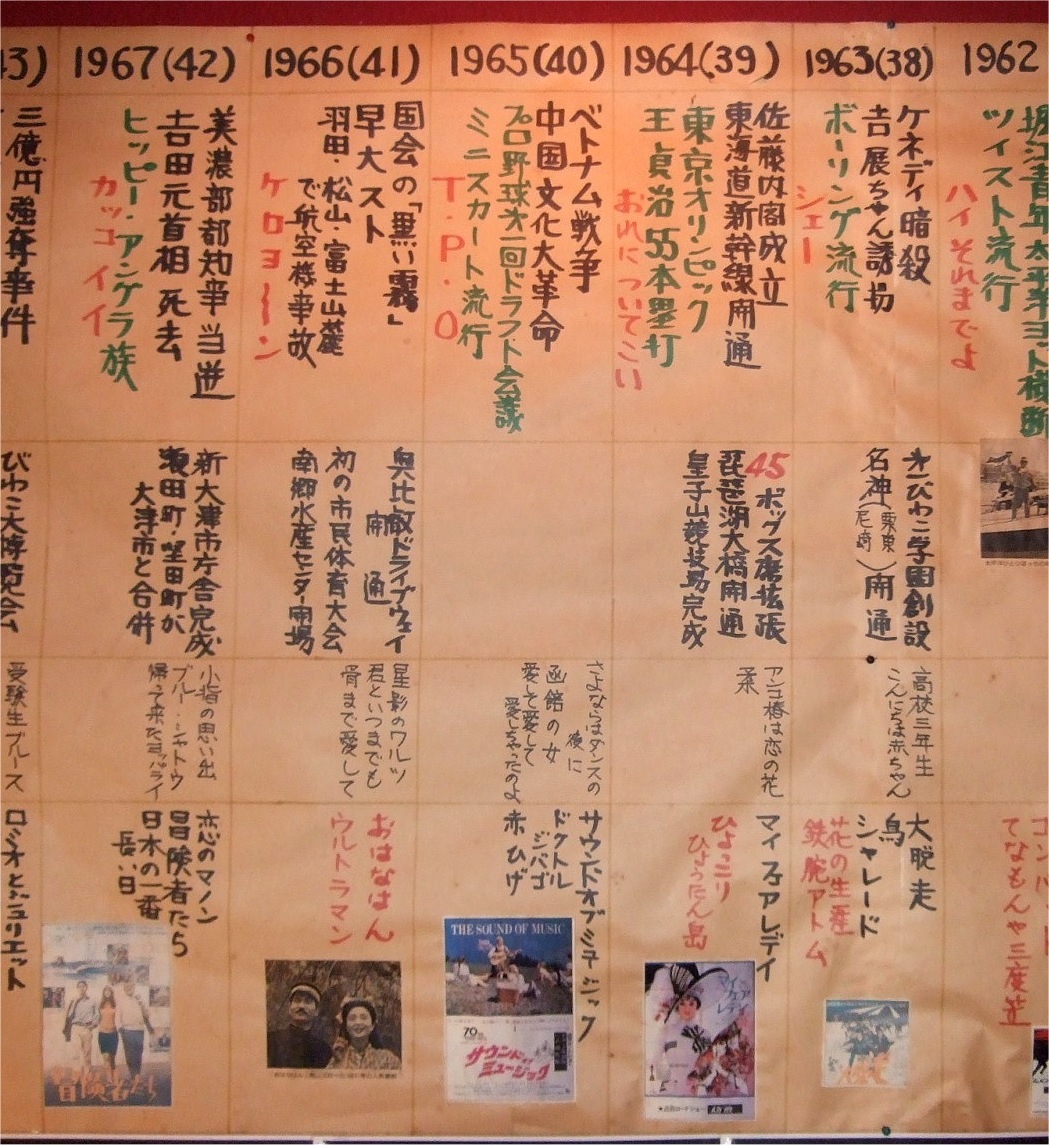 43)
1967(42)
1966(41)
1965(40)
1964(39)
1963(38)
1962
ケネディ暗殺
吉展ちゃん誘拐
ボーリング流行
シェー
佐藤内閣成立
東海道新幹線開通
東京オリンピック
王貞治55本塁打
おれについてこい
ベトナム戦争
中国文化大革命
プロ野球才一回ドラフト会議
ミニスカート流行
T・P・O
国会の「黒い霧」
早大スト
羽田・松山・富士山麓
で航空機事故
ケロヨーン
美濃部都知事当選
吉田元首相 死去
ヒッピー・アングラ族
カッコイイ
三億円強奪事件
堀江青年太平洋ヨット横断
ツイスト流行
ハイそれまでよ
才一びわこ学園創設
名神(栗東
尼崎)開通
45ボックス磨拡張
琵琶湖大橋開通
皇子山競技場完成
奥比叡ドライブウェイ
開通
初の市民体育大会
南郷水産センター開場
新大津市庁舎完成
瀬田町・堅田町が
大津市と合併
びわこ大博覧会
高校三年生
こんにちは赤ちゃん
アンコ椿は恋の花
柔
さよならはダンスの
後に
函館の女
愛して愛して
愛しちゃったのよ
星影のワルツ
君といつまでも
骨まで愛して
小指の思い出
ブルー・シャトウ
帰って来たヨッパライ
受験生ブルース
てなもんや三度笠
大脱走
鳥
シャレード
花の生涯
鉄腕アトム
マイフェアレディ
ひょっこり
ひょうたん島
サウンドオブミュージック
ドクトル
ジバゴ
赤ひげ
おはなはん
ウルトラマン
恋のマノン
冒険者たち
日本の一番
長い日
ロミオとジュリエット
冒険者たち
THE SOUND OF MUSIC
70
サウンド・オブ・
ミュージック
マイ・
フェア・
レディ
大脱走